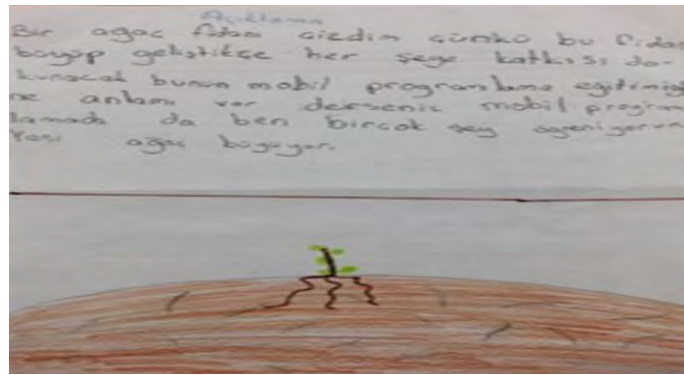 Açıklama
Bir ağaç fidanı çizdim çünkü bu fidan
büyüp geliştikçe her şeye katkısı do-
kunacak bunun mobil programlama eğitimiyle
ne anlamı var derseniz mobil program
lamada da ben birçok şey öğreniyorum
Yani ağaç büyüyor.